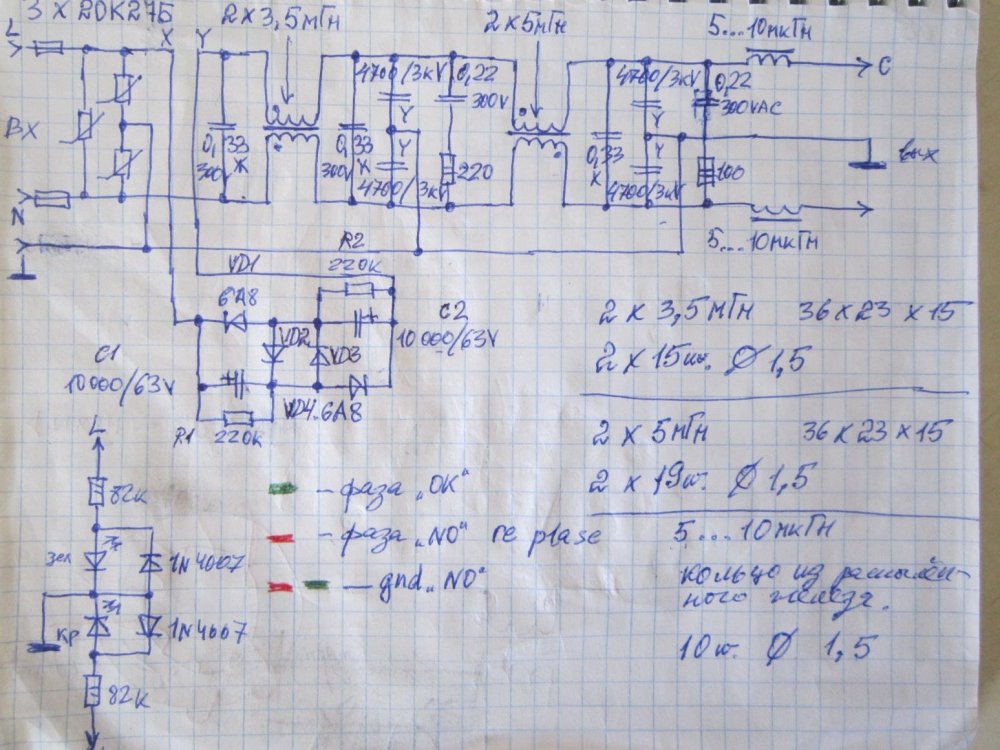 3 X 20K275
2 X 3,5мГн
2 X 5мГн
5...10мкГн
L
X
Y
4700/3kV
0,22
300V
4700/3kV
0,22
300VAC
C
ВХ
0,33
Ж
300V
0,33
X
300V
Y
Y
4700/3kV
220
0,33
X
Y
Y
4700/3kV
100
вых
N
5...10мкГн
R2
220к
VD1
6A8
C2
10000/63V
VD2
VD3
C1
10000/63V
VD4.6A8
R1
220к
2 x 3,5мГн 36 x 23 x 15
2 x 15ш. Ø 1,5
2 x 5мГн 36 x 23 x 15
2 x 19ш. Ø 1,5
5...10мкГн
кольцо из распылён-
ного железа.
10ш. Ø 1,5
L
82к
зел
1N4007
кр
1N4007
82к
N
– фаза „OK“
– фаза „NO“ re plase
– gnd „NO“